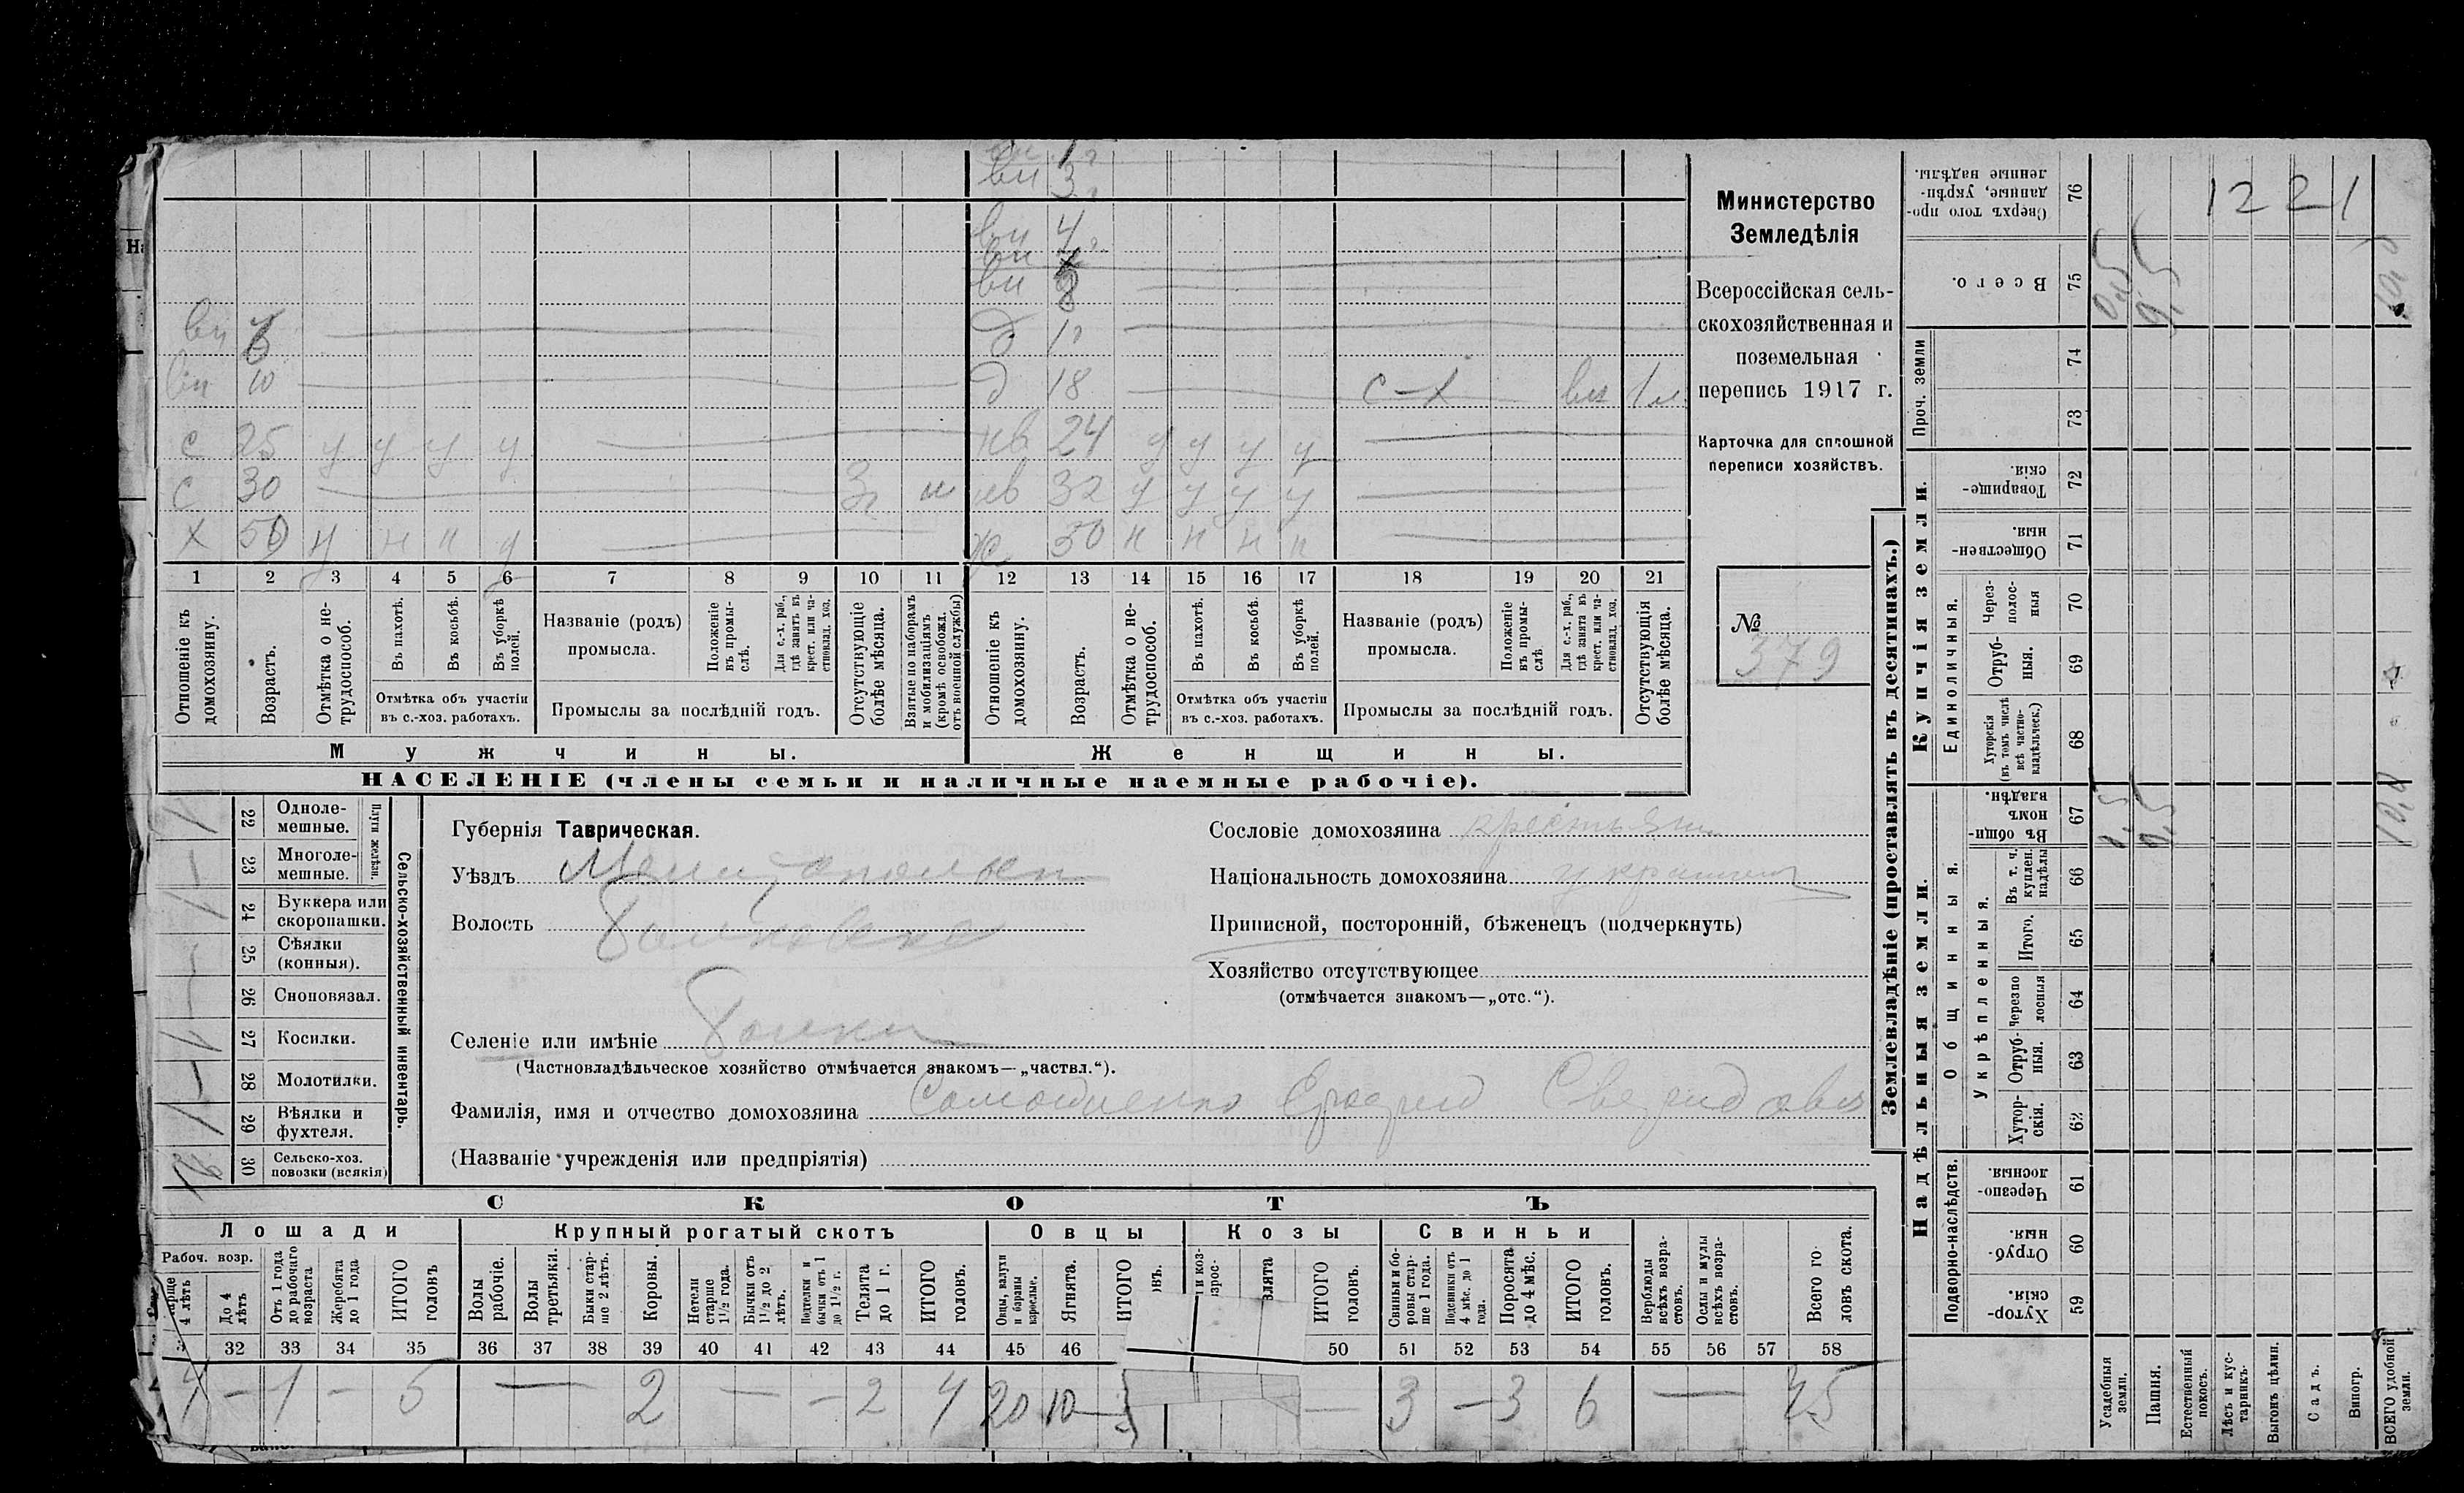 вн 3
вн 4
вн
вн 8
вн 6 д
вн 10 д 18 с-х вл 1 м
с 25 у у у у нв 24 у у у у
с 30 нв 32 у у у у
х 50 н н у ж 50 н н н н
1 2 3 4 5 6 7 8 9 10 11 12 13 14 15 16 17 18 19 20 21
Отношеніе къ домохозяину.
Возрастъ.
Отмѣтка о не-трудоспособ.
Въ пахотѣ.
Въ косьбѣ.
Въ уборкѣ полей.
Отмѣтка объ участіи въ с.-хоз. работахъ.
Названіе (родъ) промысла.
Положеніе въ промы-слѣ.
Для с.-х. раб., гдѣ занятъ въ крест. или ча-стновлад. хоз.
Промыслы за послѣдній годъ.
Отсутствующіе болѣе мѣсяца.
Взятые по наборамъ и мобилизаціямъ (кромѣ освобожд. отъ военной службы)
Отношеніе къ домохозяину.
Возрастъ.
Отмѣтка о не-трудоспособ.
Въ пахотѣ.
Въ косьбѣ.
Въ уборкѣ полей.
Отмѣтка объ участіи въ с.-хоз. работахъ.
Названіе (родъ) промысла.
Положеніе въ промы-слѣ
Для с.-х. раб., гдѣ занята въ крест. или ча-стновлад. хоз.
Промыслы за послѣдній годъ.
Отсутствующія болѣе мѣсяца.
Мужчины. Женщины.
НАСЕЛЕНІЕ (члены семьи и наличные наемные рабочіе).
Министерство
Земледѣлія
Всероссійская сель-
скохозяйственная и
поземельная
перепись 1917 г.
Карточка для сплошной
переписи хозяйствъ.
№
379
22 Одноле-мешные.
23 Многоле-мешные.
Плуги желѣзн.
24 Буккера или скоропашки.
25 Сѣялки (конныя).
26 Сноповязал.
27 Косилки.
28 Молотилки.
29 Вѣялки и фухтеля.
30 Сельско-хоз. повозки (всякія)
Сельско-хозяйственный инвентарь.
Губернія Таврическая.
Уѣздъ Мелитопольск
Волость
Селеніе или имѣніе
(Частновладѣльческое хозяйство отмѣчается знакомъ—„частвл.“).
Фамилія, имя и отчество домохозяина
(Названіе учрежденія или предпріятія)
Сословіе домохозяина крестьянин
Національность домохозяина украинец
Приписной, посторонній, бѣженецъ (подчеркнуть)
Хозяйство отсутствующее
(отмѣчается знакомъ—„отс.“).
СКОТЪ
Лошади Крупный рогатый скотъ Овцы Козы Свиньи
Рабоч. возр.
4 лѣтъ
До 4 лѣтъ
Отъ 1 года до рабочаго возраста
Жеребята до 1 года
ИТОГО головъ
Волы рабочіе.
Волы третьяки.
Быки стар-ше 2 лѣтъ.
Коровы.
Нетели старше 1½ года.
Бычки отъ 1½ до 2 лѣтъ.
Подтелки и бычки отъ 1 до 1½ г.
Телята до 1 г.
ИТОГО головъ.
Овцы, валухи и бараны взрослые.
Ягнята.
ИТОГО
ИТОГО головъ.
Свиньи и бо-ровы стар-ше 1 года.
Подсвинки отъ 4 мѣс. до 1 года.
Поросята до 4 мѣс.
ИТОГО головъ.
Верблюды всѣхъ возра-стовъ.
Ослы и мулы всѣхъ возра-стовъ.
Всего го ловъ скота.
32 33 34 35 36 37 38 39 40 41 42 43 44 45 46 50 51 52 53 54 55 56 57 58
4 — 1 — 5 — 2 — — 2 4 20 10 — 3 — 3 6 — 45
Землевладѣніе (проставлять въ десятинахъ.)
Надѣльныя земли. Купчія земли. Проч. земли
Подворно-наслѣдств.
Общинныя.
Укрѣпленныя.
Единоличныя.
Сверхъ того про-данные, укрѣп-ленные надѣлы. 76
Всего. 75
74
73
Товарище-скія. 72
Обществен-ныя. 71
Через-полос-ныя 70
Отруб-ныя. 69
Хуторскія (въ томъ числѣ всѣ частно-владѣльческ.) 68
Въ общин-номъ владѣн. 67
Въ т. ч. куплен. надѣлы 66
Итого. 65
Черезпо лосныя 64
Отруб-ныя. 63
Хутор-скія. 62
Черезпо-лосныя. 61
Отруб-ныя. 60
Хутор-скія. 59
Усадебныя земли.
Пашня.
Естественный покосъ.
Лѣсъ и кус-тарникъ.
Выгонъ цѣлин.
Садъ.
Виногр.
ВСЕГО удобной земли.
1221
0,5 9,5